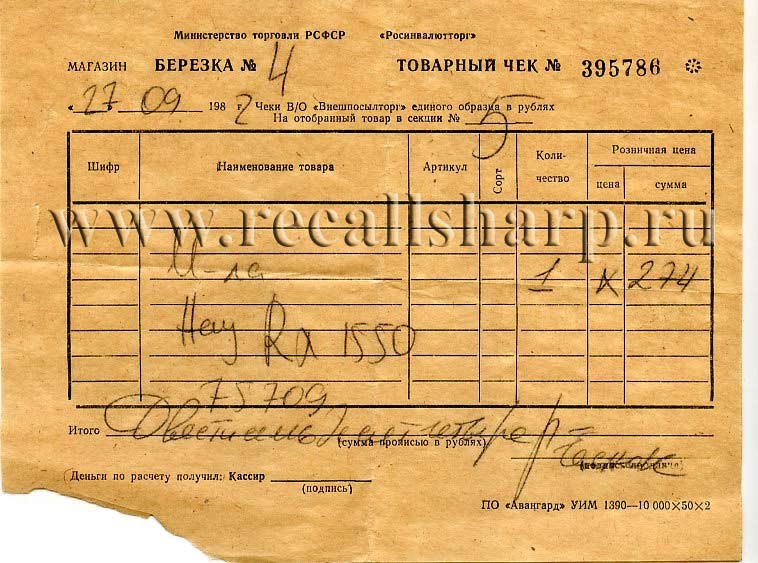 Министерство торговли РСФСР «Росинвалютторг»
МАГАЗИН БЕРЕЗКА № 4 ТОВАРНЫЙ ЧЕК № 395786
« 27 » 09 1982 г. Чеки В/О «Внешпосылторг» единого образца в рублях
На отобранный товар в секции № 5
Шифр Наименование товара Артикул Сорт Количество Розничная цена
цена сумма
www.recallsharp.ru
М-ла 1 x 274
Rx 1550
75709
Итого Двести семьдесят четыре р =
(сумма прописью в рублях)
Деньги по расчету получил: Кассир
(подпись)
ПО «Авангард» УИМ 1390—10 000×50×2